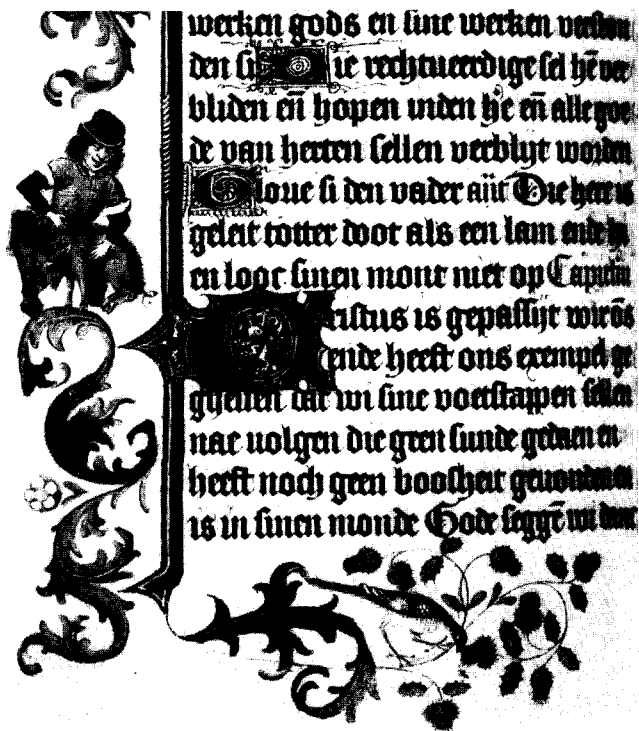 werken gods en sine werken verston
den si Die rechtueerdige sel hē ver
bliden en̄ hopen inden he en̄ alle goe
de van herten sellen verblijt worden
Gloue si den vader an̄t Die here is
geleit totter doot als een lam ende hi
en looc sinen mont niet op Capittel
Christus is gepassijt wirōs
ende heeft ons exempel ge
ghesten dat wi sine voetstappen sellen
nae uolgen die geen sunde gedaen en
heeft noch geen boosheit geuonden en
is in sinen monde Gode seggē wi danc